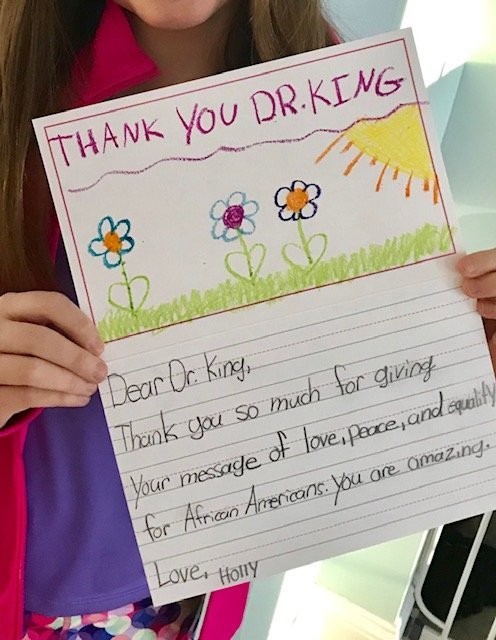 THANK YOU DR. KING
Dear Dr. King,
Thank you so much for giving
Your message of love, peace, and equality
for African Americans. You are amazing.
Love, Holly